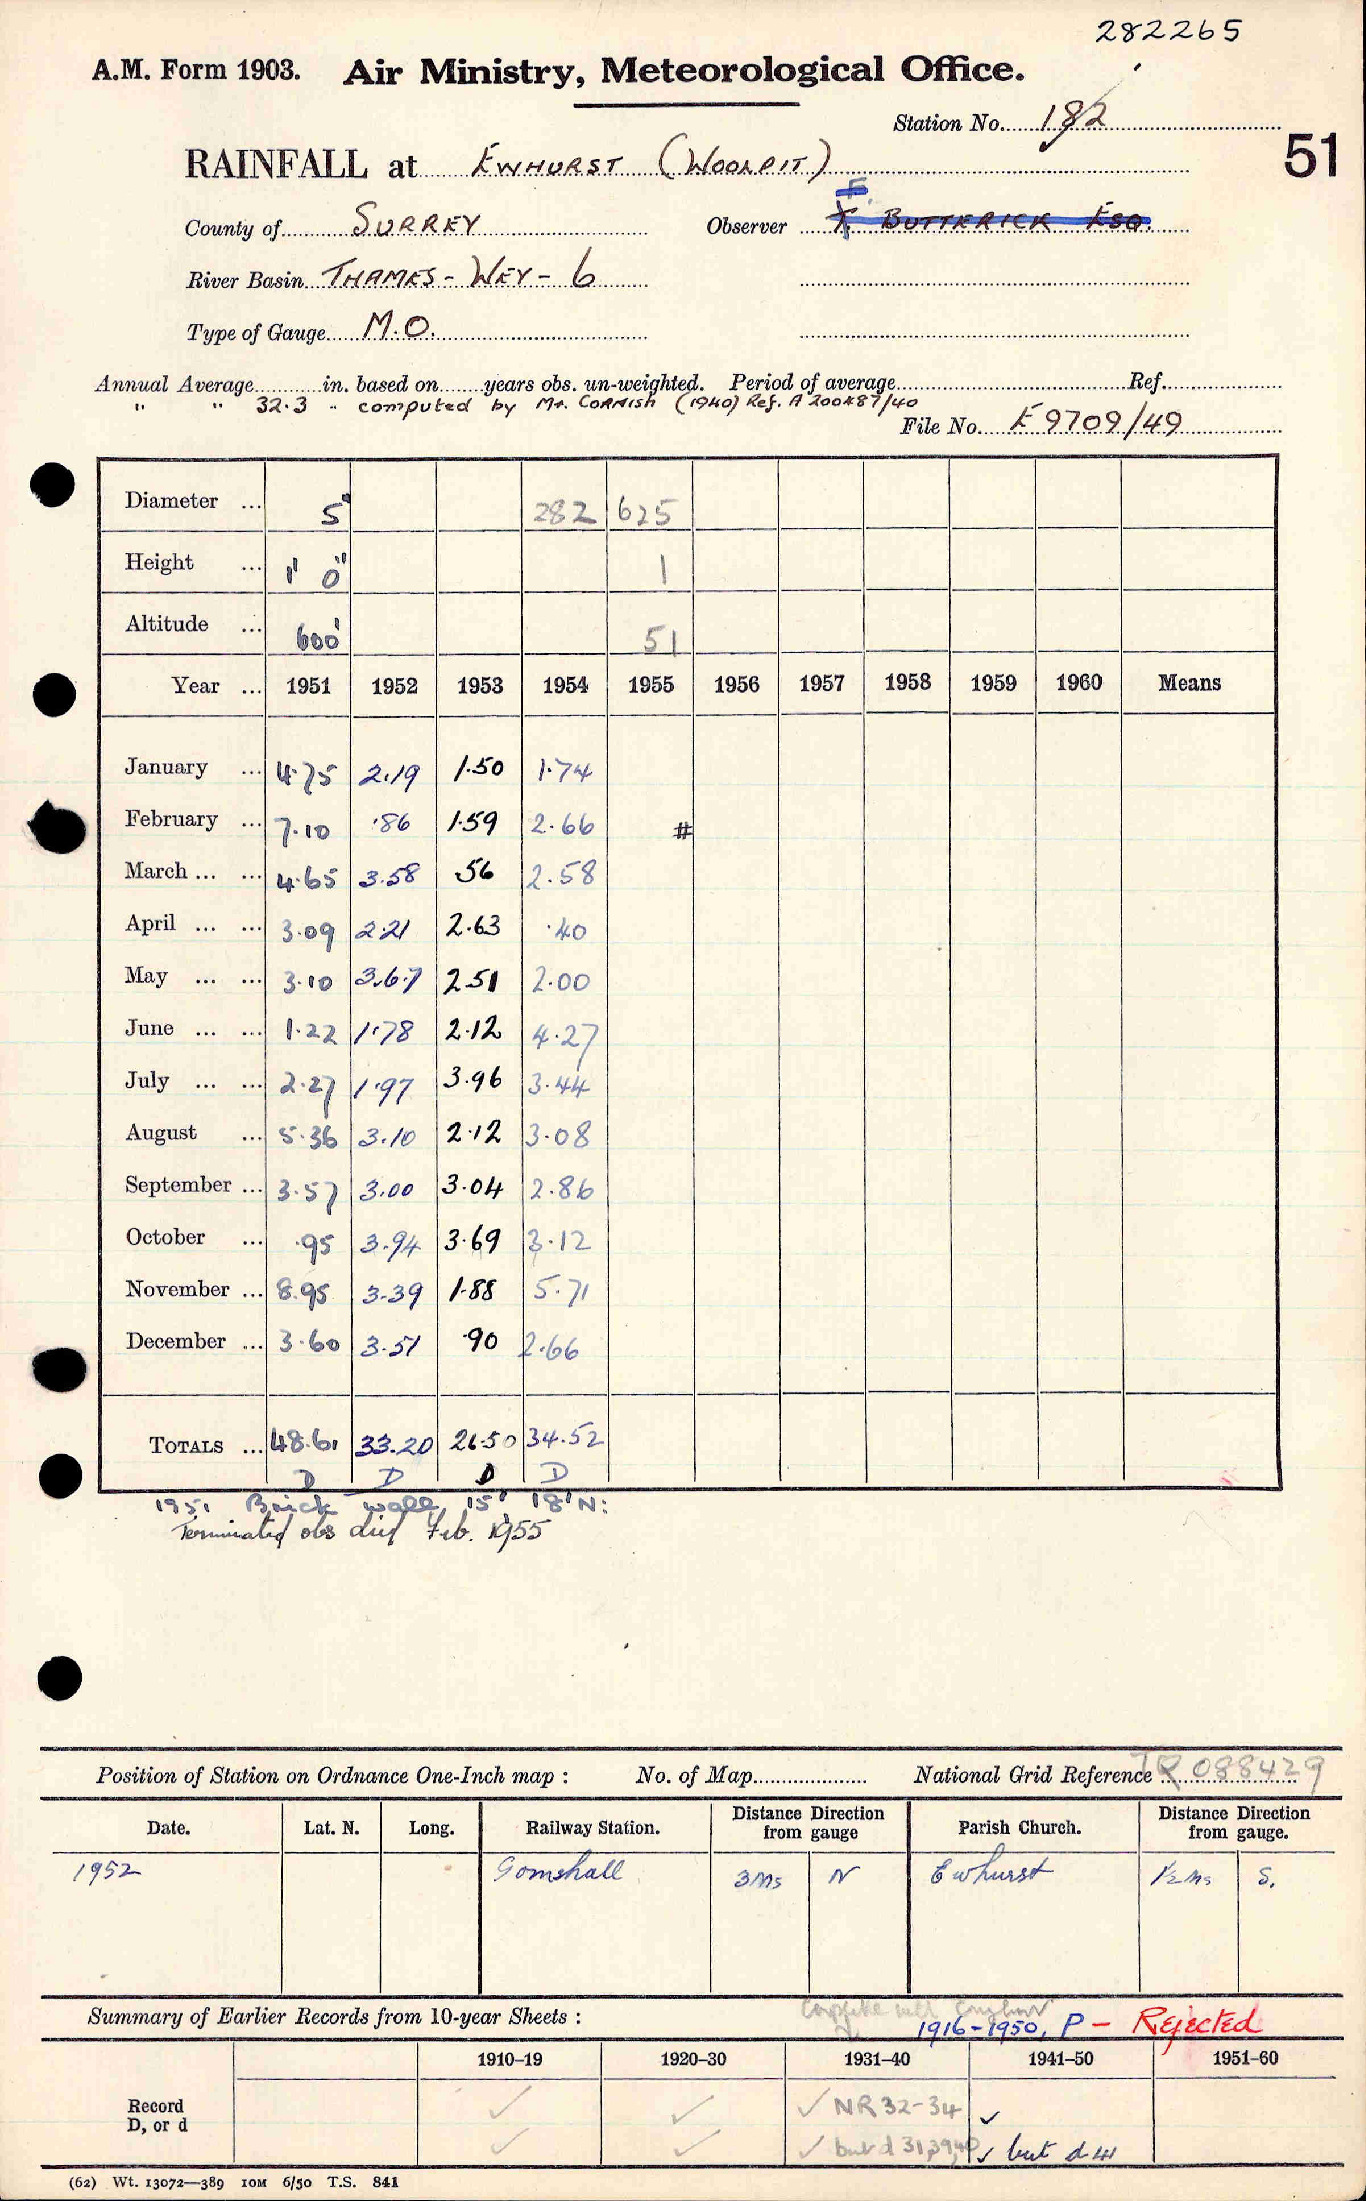 282265
A.M. Form 1903. Air Ministry, Meteorological Office.
Station No. 182
51
RAINFALL at EWHURST (WOOLPIT)
County of SURREY Observer F. BUTTERICK ESQ.
River Basin THAMES - WEY - 6
Type of Gauge M.O.
Annual Average in. based on years obs. un-weighted. Period of average Ref.
" " 32.3 " computed by Mr. CORNISH (1940) Ref. A 200487/40
File No. E 9709/49
Diameter ... 5" 282 625
Height ... 1' 0" 1
Altitude ... 600' 51
Year ... 1951 1952 1953 1954 1955 1956 1957 1958 1959 1960 Means
January ... 4.75 2.19 1.50 1.74
February ... 7.10 .86 1.59 2.66 #
March ... ... 4.65 3.58 .56 2.58
April ... ... 3.09 2.21 2.63 .40
May ... ... 3.10 3.67 2.51 2.00
June ... ... 1.22 1.78 2.12 4.27
July ... ... 2.27 1.97 3.96 3.44
August ... 5.36 3.10 2.12 3.08
September ... 3.57 3.00 3.04 2.86
October ... .95 3.94 3.69 3.12
November ... 8.95 3.39 1.88 5.71
December ... 3.60 3.51 .90 2.66
TOTALS ... 48.61 33.20 26.50 34.52
D D D D
1951 Brick wall, 15' 18' N:
Terminated obs died Feb. 1955
Position of Station on Ordnance One-Inch map : No. of Map National Grid Reference TQ 088429
Date. Lat. N. Long. Railway Station. Distance Direction from gauge Parish Church. Distance Direction from gauge.
1952 Gomshall 3 Ms N Ewhurst 1½ Ms S.
Summary of Earlier Records from 10-year Sheets :
1916-1950, P - Rejected
1910-19 1920-30 1931-40 1941-50 1951-60
Record ✓ ✓ ✓ NR 32-34 ✓
D, or d ✓ ✓ ✓ but d 31,39,40 ✓ but d 41
(62) Wt. 13072—389 10M 6/50 T.S. 841